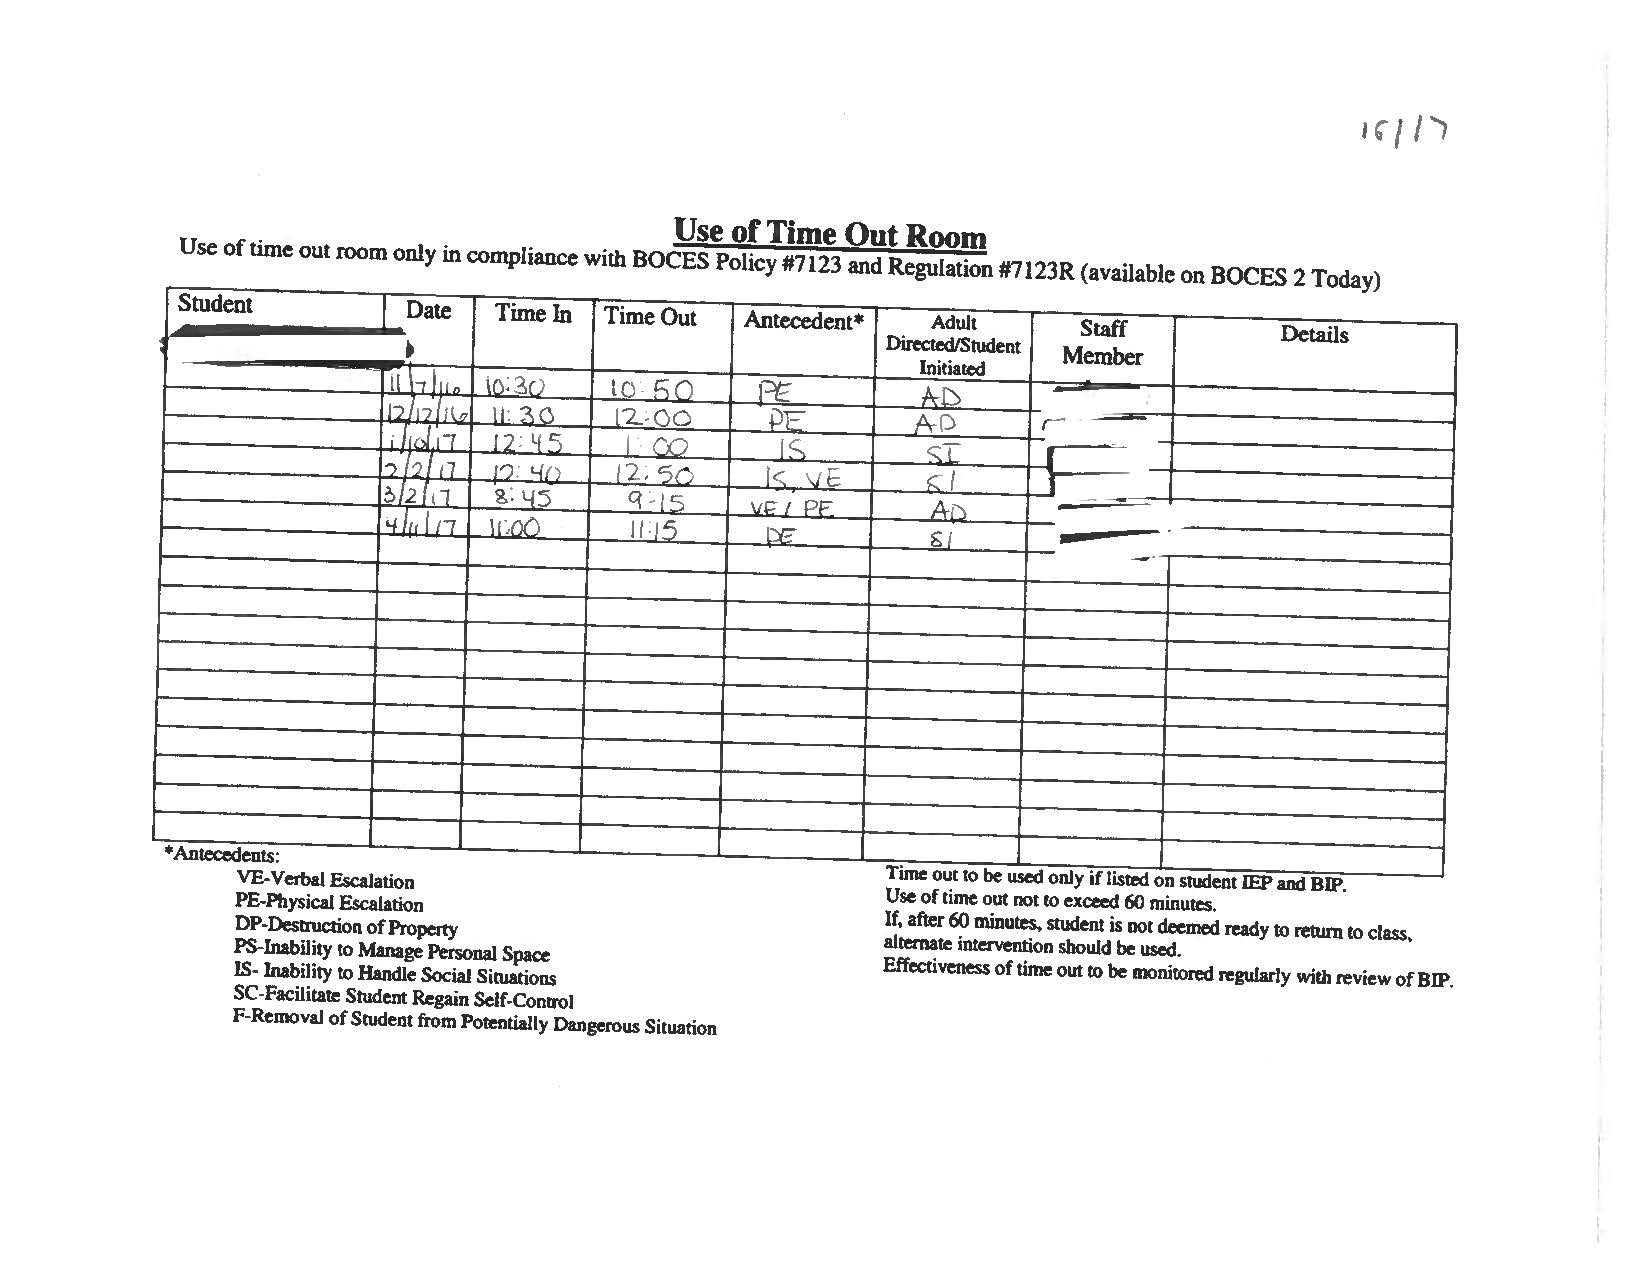 16/17
Use of Time Out Room
Use of time out room only in compliance with BOCES Policy #7123 and Regulation #7123R (available on BOCES 2 Today)
Student Date Time In Time Out Antecedent* Adult Directed/Student Initiated Staff Member Details
11/7/16 10:30 10:50 PE AD
12/12/16 11:30 12:00 PE AD
1/10/17 12:45 1:00 IS SI
2/2/17 12:40 12:50 IS, VE SI
3/2/17 8:45 9:15 VE / PE AD
11:00 11:15 PE SI
*Antecedents:
VE-Verbal Escalation
PE-Physical Escalation
DP-Destruction of Property
PS-Inability to Manage Personal Space
IS- Inability to Handle Social Situations
SC-Facilitate Student Regain Self-Control
F-Removal of Student from Potentially Dangerous Situation
Time out to be used only if listed on student IEP and BIP.
Use of time out not to exceed 60 minutes.
If, after 60 minutes, student is not deemed ready to return to class,
alternate intervention should be used.
Effectiveness of time out to be monitored regularly with review of BIP.